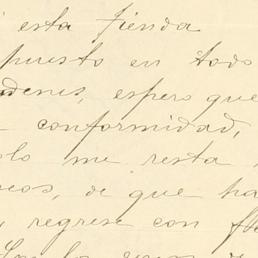 esta tienda
puesto en todo
denes, espero que
conformidad,
lo me resta
eos, de que ha
regrese con